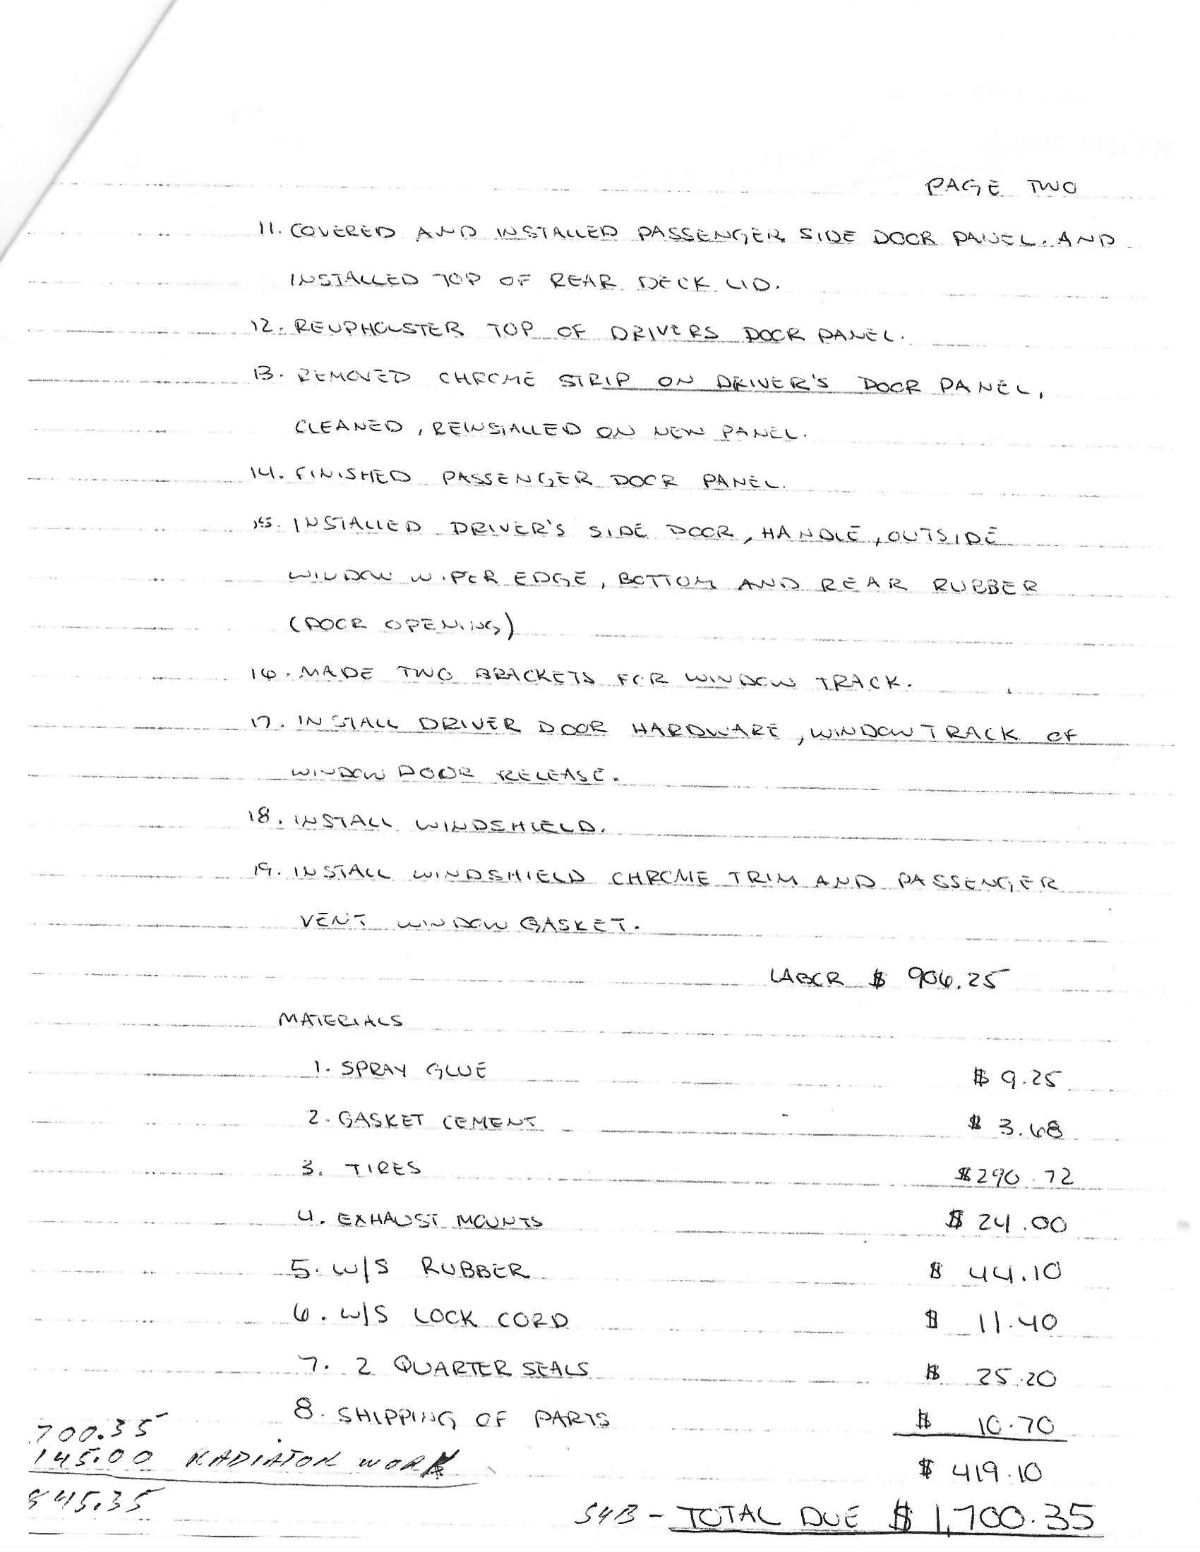 PAGE TWO
11. COVERED AND INSTALLED PASSENGER SIDE DOOR PANEL. AND
INSTALLED TOP OF REAR DECK LID.
12. REUPHOLSTER TOP OF DRIVERS DOOR PANEL.
13. REMOVED CHROME STRIP ON DRIVER'S DOOR PANEL,
CLEANED, REINSTALLED ON NEW PANEL.
14. FINISHED PASSENGER DOOR PANEL.
15. INSTALLED DRIVER'S SIDE DOOR, HANDLE, OUTSIDE
WINDOW WIPER EDGE, BOTTOM AND REAR RUBBER
(DOOR OPENING)
16. MADE TWO BRACKETS FOR WINDOW TRACK.
17. INSTALL DRIVER DOOR HARDWARE, WINDOW TRACK OF
WINDOW DOOR RELEASE.
18. INSTALL WINDSHIELD.
19. INSTALL WINDSHIELD CHROME TRIM AND PASSENGER
VENT WINDOW GASKET.
LABOR $ 906.25
MATERIALS
1. SPRAY GLUE $ 9.25
2. GASKET CEMENT $ 3.68
3. TIRES $290.72
4. EXHAUST MOUNTS $ 24.00
5. W/S RUBBER $ 44.10
6. W/S LOCK CORD $ 11.40
7. 2 QUARTER SEALS $ 25.20
8. SHIPPING OF PARTS $ 10.70
$ 419.10
SUB - TOTAL DUE $ 1,700.35
700.35
145.00 RADIATOR WORK
845.35